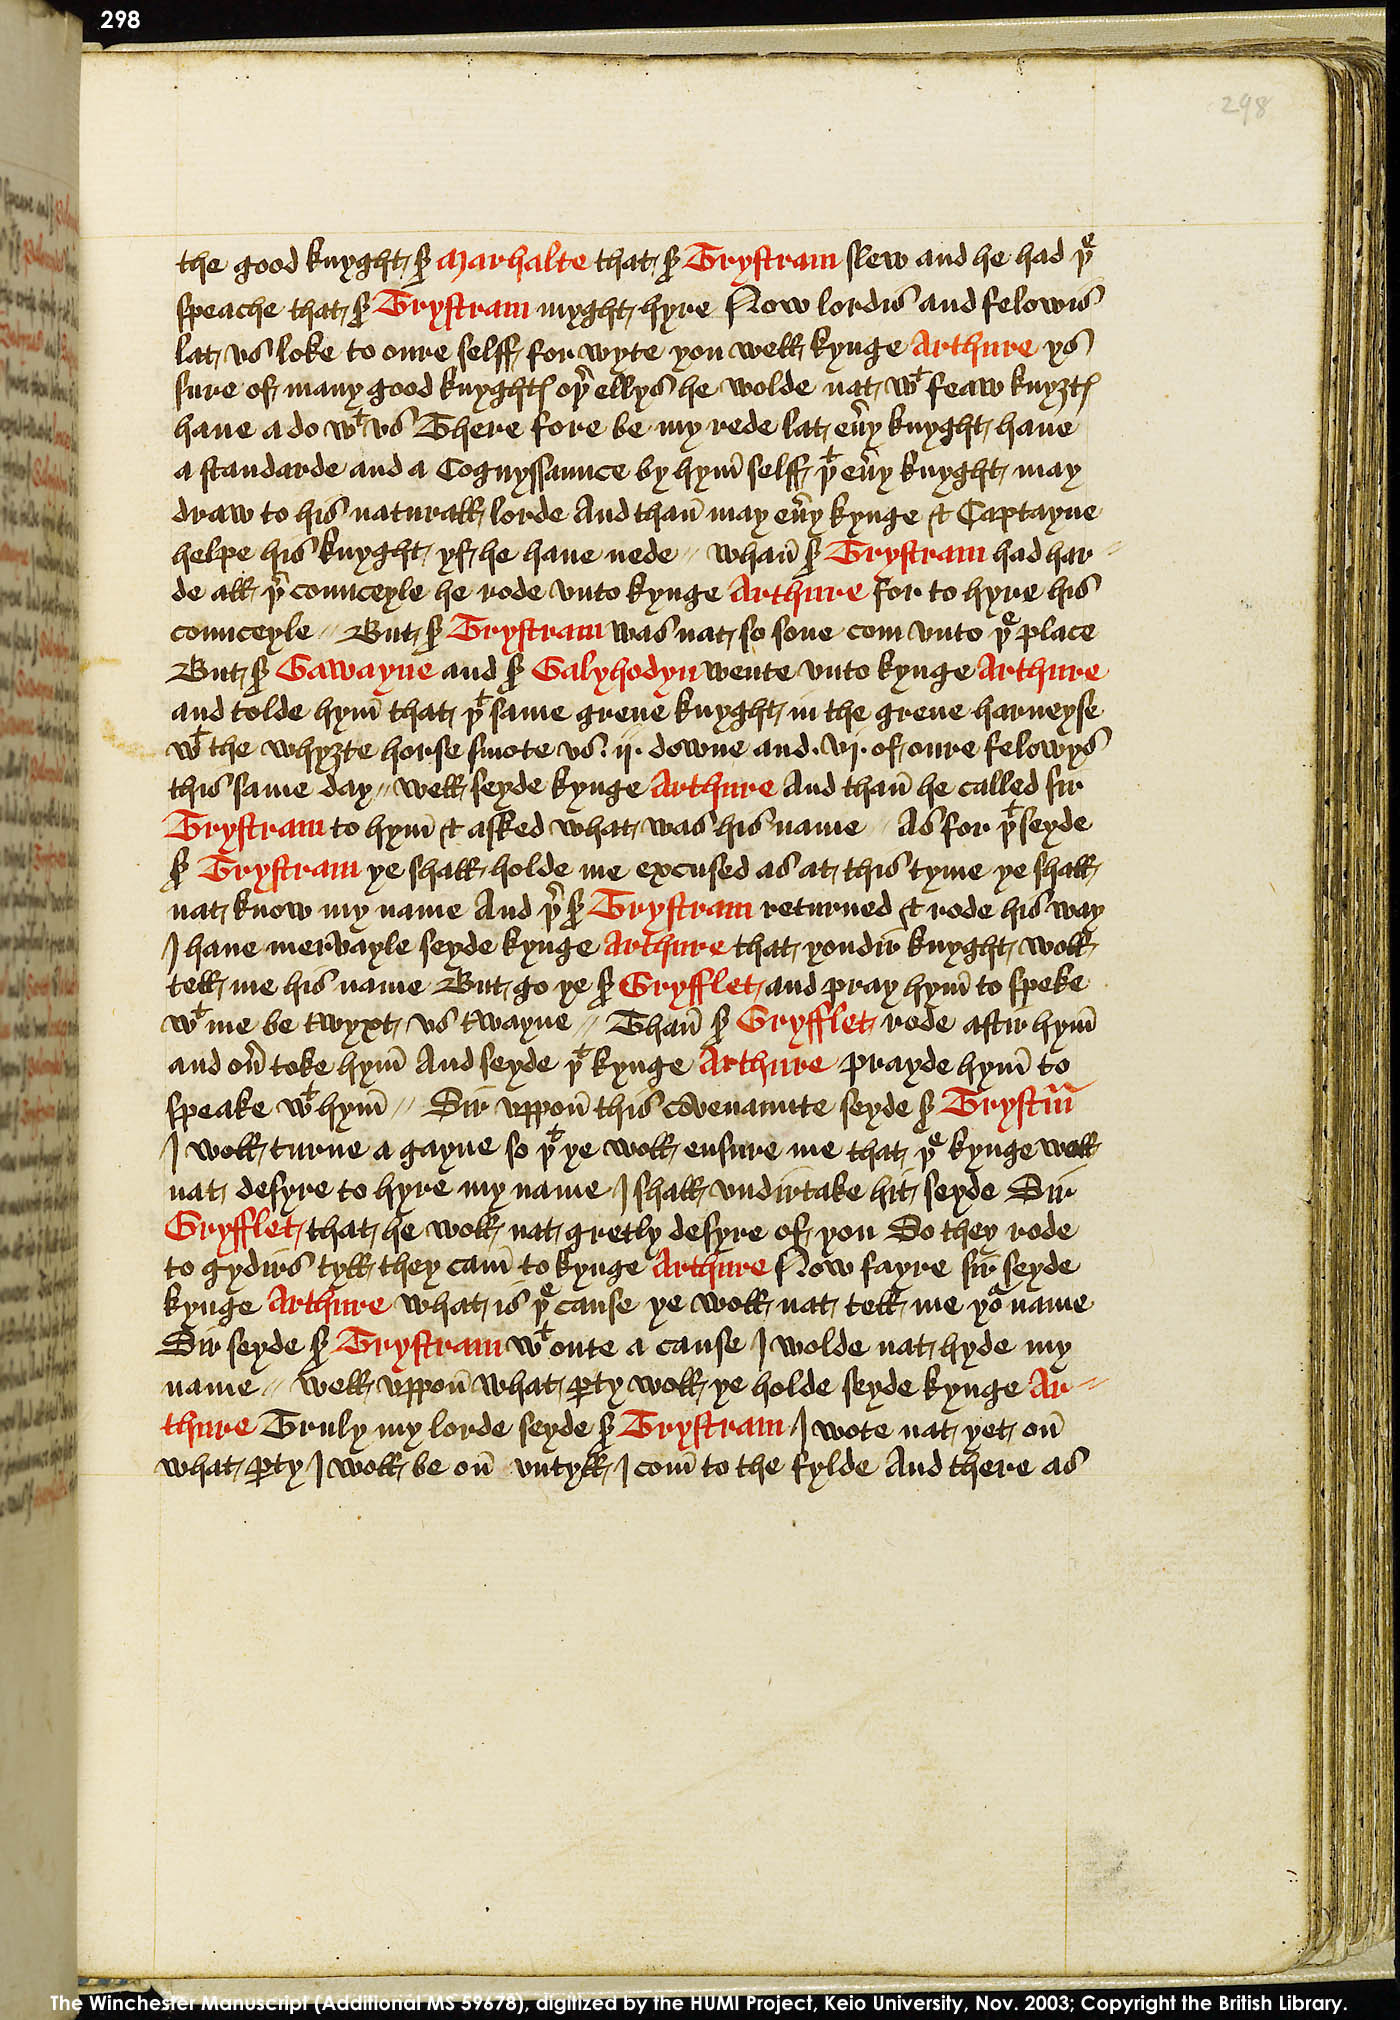 298
298
the good knyght sr Marhalte that sr Trystram slew and he had þe
speache that sr Trystram myght hyre Now lordis and felowis
lat vs loke to oure selff for wyte you well kynge Arthure ys
sure of many good knyghtes oþr ellys he wolde nat wt feaw knyȝtes
haue a do wt vs There fore be my rede lat eũy knyght haue
a standarde and a Cognyssaunce by hym̄ self þt eũy knyght may
draw to his naturall lorde And than̄ may eũy kynge & Captayne
helpe his knyght yf he haue nede // whan̄ sr Trystram had har=
de all þr counceyle he rode vnto kynge Arthure for to hyre his
counceyle // But sr Trystram was nat so sone com vnto þe place
But sr Gawayne and sr Galyhodyn wente vnto kynge Arthure
and tolde hym̄ that þt same grene knyght in the grene harneyse
wt the whyȝte horse smote vs .ij. downe and .vj. of oure felowys
this same day // well seyde kynge Arthure And than̄ he called sir
Trystram to hym̄ & asked what was his name // As for þt seyde
sr Trystram ye shall holde me excused as at this tyme ye shall
nat know my name And þr sr Trystram returned & rode his way
I haue mervayle seyde kynge Arthure that yondir knyght woll
tell me his name But go ye sr Gryfflet and pray hym̄ to speke
wt me be twyxt vs twayne // Than̄ sr Gryfflet rode aftir hym̄
and oũ toke hym̄ And seyde þt kynge Arthure prayde hym̄ to
speake wt hym̄ // Sir vppon̄ this covenaunte seyde sr Trystrm̄
I woll turne a gayne so þt ye woll ensure me that þe kynge woll
nat desyre to hyre my name I shall vndirtake hit seyde Sir
Gryfflet that he woll nat gretly desyre of you So they rode
to gydirs tyll they cam̄ to kynge Arthure Now fayre sir seyde
kynge Arthure what is þe cause ye woll nat tell me yor name
Sir seyde sr Trystram wt oute a cause I wolde nat hyde my
name // well vppon̄ what ꝑty woll ye holde seyde kynge Ar=
thure Truly my lorde seyde sr Trystram I wote nat yet on̄
what ꝑty I woll be on̄ vntyll I com̄ to the fylde And there as
The Winchester Manuscript (Additional MS 59678), digitized by the HUMI Project, Keio University, Nov. 2003; Copyright the British Library.